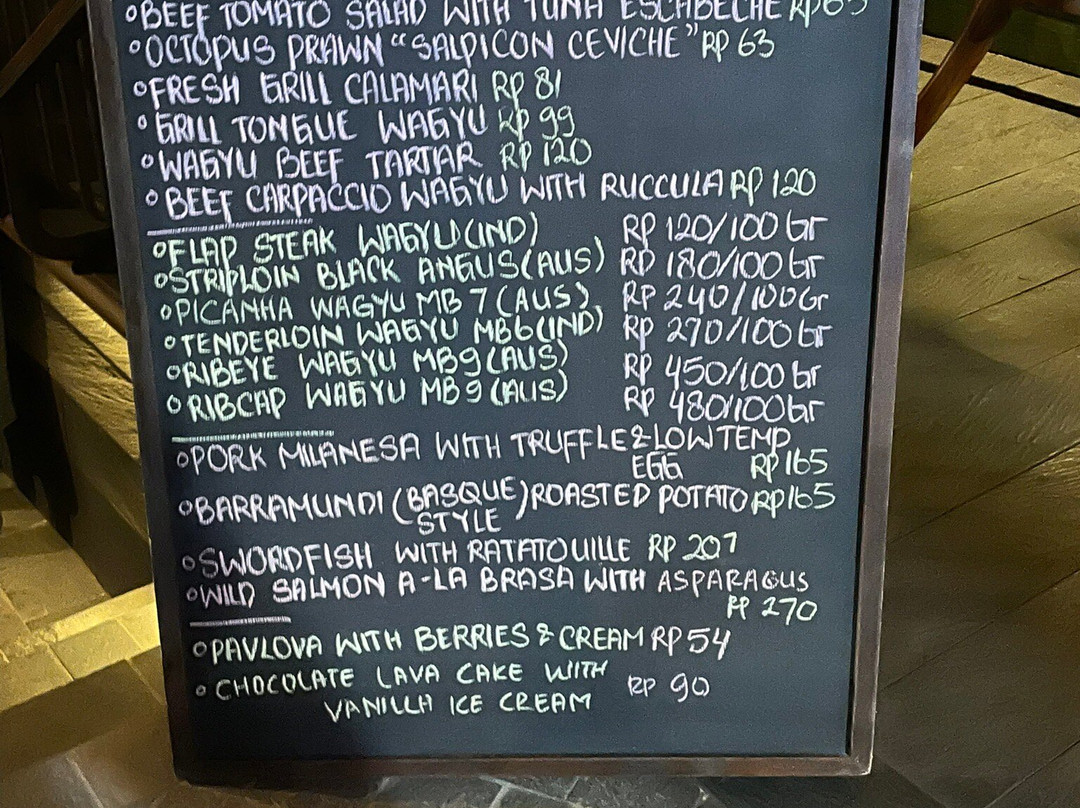 BEEF TOMATO SALAD WITH TUNA ESCABECHE RP 63
OCTOPUS PRAWN "SALPICON CEVICHE" RP 63
FRESH GRILL CALAMARI RP 81
GRILL TONGUE WAGYU RP 99
WAGYU BEEF TARTAR RP 120
BEEF CARPACCIO WAGYU WITH RUCCULA RP 120
FLAP STEAK WAGYU (IND) RP 120/100 Gr
STRIPLOIN BLACK ANGUS (AUS) RP 180/100 Gr
PICANHA WAGYU MB 7 (AUS) RP 240/100 Gr
TENDERLOIN WAGYU MB6 (IND) RP 270/100 Gr
RIBEYE WAGYU MB9 (AUS) RP 450/100 Gr
RIBCAP WAGYU MB9 (AUS) RP 480/100 Gr
PORK MILANESA WITH TRUFFLE & LOW TEMP
EGG RP 165
BARRAMUNDI (BASQUE) ROASTED POTATO RP 165
STYLE
SWORDFISH WITH RATATOUILLE RP 207
WILD SALMON A-LA BRASA WITH ASPARAGUS
RP 270
PAVLOVA WITH BERRIES & CREAM RP 54
CHOCOLATE LAVA CAKE WITH RP 90
VANILLA ICE CREAM